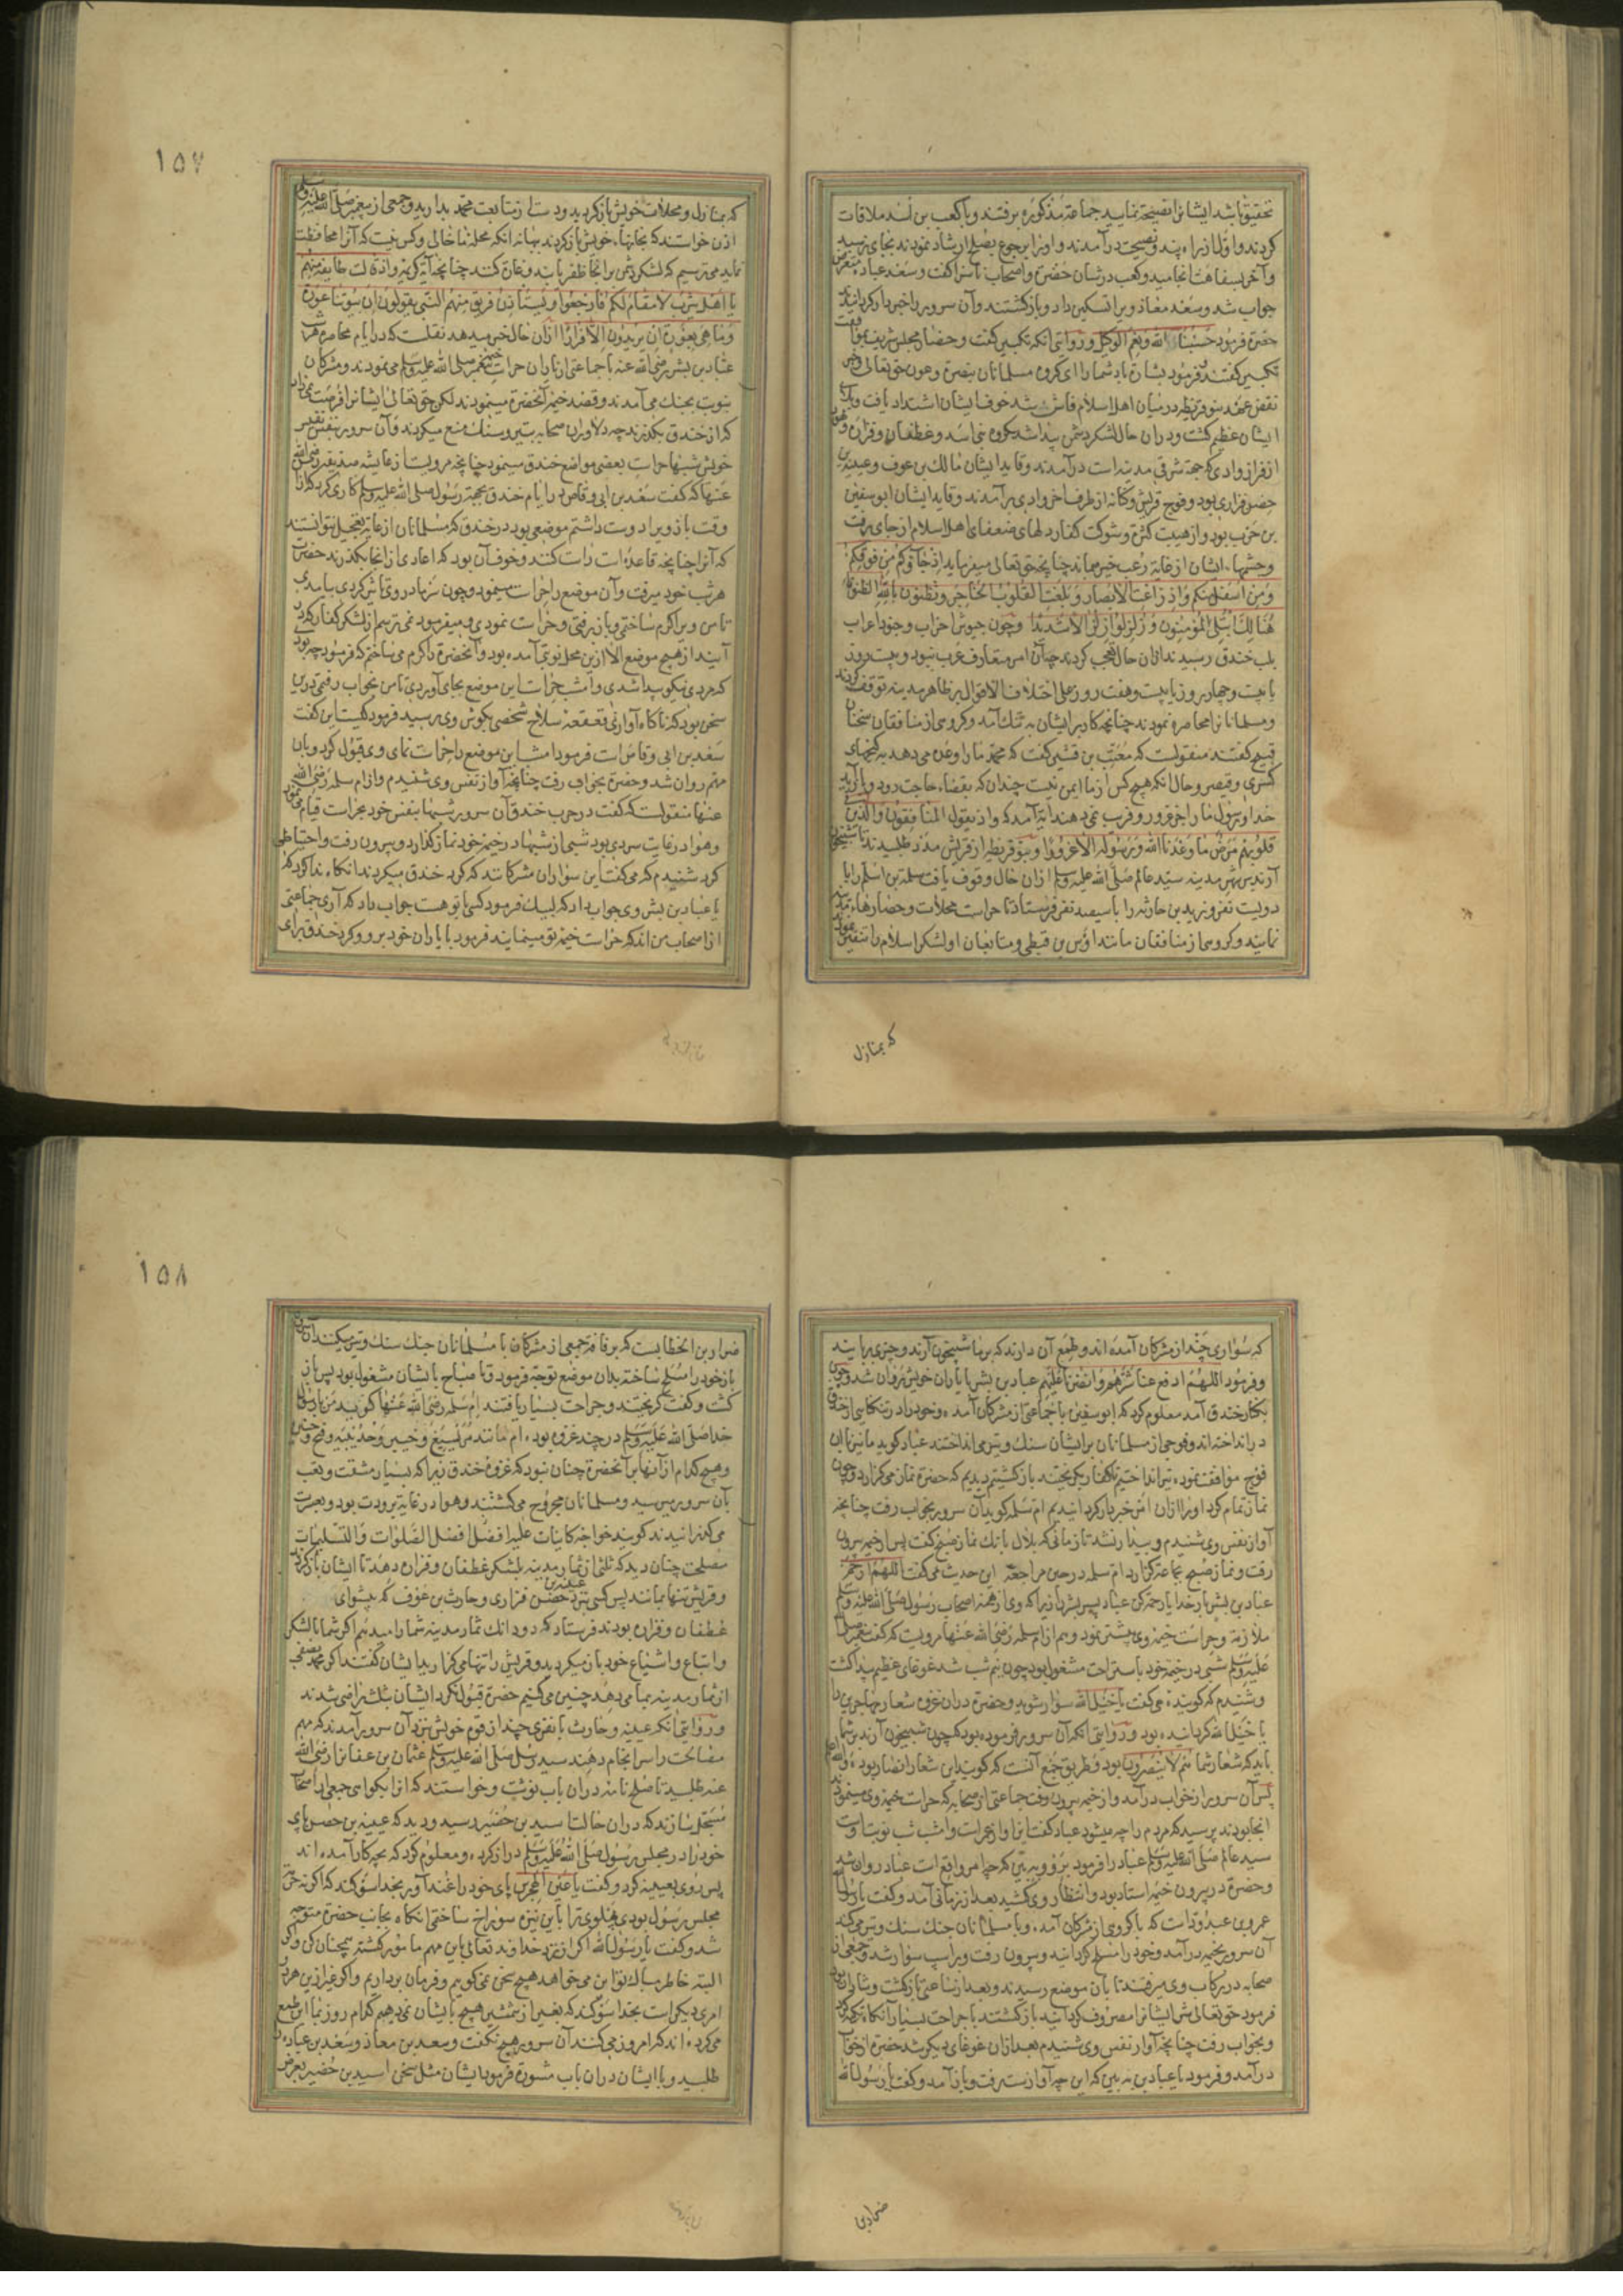 تحقیق باشد ایشانرا نصیحة نمایید جماعة مذکوره برفتند و با کعب بن اسد ملاقات
کردند و اولا از راه پند و نصیحت درآمدند و او را برجوع بصلح ارشاد نمودند بجای نرسید
و آخر بسفاهت انجامید و کعب در شان حضرة و اصحاب ناسزا گفت و سعد عباده متعرض
جواب شد و سعد معاذ ویرا تسکین داد و بازگشتند و آن سرور را خبردار گردانیدند
حضرة فرمود حسبنا الله ونعم الوکیل و روایتی آنکه تکبیر گفت و حضار مجلس شریف
تکبیر گفتند و فرمود بشارة باد شما را ای گروه مسلمانان بنصرة و عون حق تعالی
نقض عهد بنو قریظه در میان اهل اسلام فاش شد خوف ایشان اشتداد یافت
ایشان عظیم گشت و در آن حال لشکر دشمن پیدا شد گروه بنی اسد و غطفان و فزاره
از فراز وادی که جهة شرقی مدینه است درآمدند و قاید ایشان مالک بن عوف و عیینه بن
حصن فزاری بود و فوج قریش و کنانه از طرف آخر وادی برآمدند و قاید ایشان ابوسفین
بن حرب بود و از هیبت کثرة و شوکت کفار دلهای ضعفای اهل اسلام از جای برفت
و چشمهاء ایشان از غایة رعب خیره بماند چنانچه حق تعالی میفرماید اذ جاؤکم من فوقکم
ومن اسفل منکم واذ زاغت الابصار وبلغت القلوب الحناجر وتظنون بالله الظنونا
هنالک ابتلی المؤمنون وزلزلوا زلزالا شدیدا و چون جیوش احزاب و جنود اعراب
بلب خندق رسیدند از آن حال تعجب کردند چه آن امر متعارف عرب نبود و بیست روز
یا بیست و چهار روز یا بیست و هفت روز علی اختلاف الاقوال بر ظاهر مدینه توقف کردند
و مسلمانانرا محاصره نمودند چنانچه کار بر ایشان به تنگ آمد و گروهی از منافقان سخنان
قبیح گفتند منقولست که معتب بن قشیر گفت که محمد ما را وعده می دهد به گنجهای
کسری و قیصر و حال آنکه هیچ کس از ما ایمن نیست چندان که بقضاء حاجت رود
خدا و رسول ما را جز غرور و فریب نمی دهند آیة آمد که واذ یقول المنافقون والذین
فی قلوبهم مرض ما وعدنا الله ورسوله الا غرورا و بنو قریظه از قریش مدد طلبیدند تا شبیخون
آرند بر شهر مدینه سید عالم صلی الله علیه وسلم از آن حال وقوف یافت سلمة بن اسلم را با
دویست نفر و زید بن حارثه را با سیصد نفر فرستاد تا حراست محلات و حصارهاء مدینه
نمایند و گروهی از منافقان مانند اوس بن قیظی و متابعان او لشکر اسلام را تنفیر
که بمنازل
۱۵۷
که بمنازل و محلات خویش بازگردید و دست از متابعت محمد بدارید و جمعی از پیغمبر صلی الله علیه وسلم
اذن خواستند که بخانهاء خویش بازگردند بهانه آنکه محله ما خالی و کس نیست که آنرا محافظت
نماید می ترسیم که لشکر دشمن بر آنجا ظفر یابند و غارت کنند چنانچه آیة کریمه واذ قالت طایفة منهم
یا اهل یثرب لا مقام لکم فارجعوا ویستاذن فریق منهم النبی یقولون ان بیوتنا عورة
وما هی بعورة ان یریدون الا فرارا از آن حال خبر میدهد نقلست که در ایام محاصره هر شب
عباد بن بشر رضی الله عنه با جماعتی از یاران حراست خیمه پیغمبر صلی الله علیه وسلم می نمودند و مشرکان
بنوبت بجنک می آمدند و قصد خیمه آنحضرة مینمودند لکن حق تعالی ایشانرا فرصت نمی داد
که از خندق بگذرند چه دلاوران صحابه بتیر و سنک منع میکردند و آن سرور بنفس نفیس
خویش شبها حراست بعضی مواضع خندق مینمود چنانچه مرویست از عایشه صدیقه رضی الله
عنها که گفت سعد بن ابی وقاص در ایام خندق بجهة رسول صلی الله علیه وسلم کاری کرد که از آن
وقت باز ویرا دوست داشتم موضعی بود در خندق که مسلمانان از غایة تعجیل نتوانستند
که آنرا چنانچه قاعده است راست کنند و خوف آن بود که اعادی از آنجا بگذرند حضرت
هر شب خود میرفت و آن موضع را حراست مینمود و چون سرما در وی تاثیر کردی بیامدی
تا من ویرا گرم ساختمی و باز برفتی و حراست نمودی و میفرمود نمی ترسم از لشکر کفار که در
آیند از هیچ موضع الا ازین محل نوبتی آمده بود و آنحضرة را گرم می ساختم که فرمود چه بودی
که مردی نیکو پیدا شدی و امشب حراست این موضع بجای آوردی تا من بخواب رفتمی درین
سخن بود که ناگاه آوازی قعقعه سلاح شخصی بگوش وی رسید فرمود کیست این گفت
سعد بن ابی وقاص است فرمود امشب این موضع را حراست نمای وی قبول کرد و بان
مهم روان شد و حضرة بخواب رفت چنانچه آواز نفس وی شنیدم و از ام سلمه رضی الله
عنها منقولست که گفت در حرب خندق آن سرور شبها بنفس خود بحراست قیام می نمود
و هوا در غایت سردی بود شبی از شبها در خیمه خود نماز گذارد و بیرون رفت و احتیاطی
کرد شنیدم که می گفت این سواران مشرکانند که گرد خندق میگردند آنگاه ندا کرد که
یا عباد بن بشر وی جواب داد که لبیک فرمود کسی با تو هست جواب داد که آری جماعتی
از اصحاب من اند که حراست خیمه تو مینمایند فرمود با یاران خود برو و گرد خندق برای
که سواری چند از مشرکان آمده اند و طمع آن دارند که بر ما شبیخون آرند و چیزی بربایند
و فرمود اللهم ادفع عنا شرهم وانصرنا علیهم عباد بن بشر با یاران خویش روان شد و چون
بکنار خندق آمد معلوم کرد که ابوسفین با جماعتی از مشرکان آمده و خود را در تنگنای از خندق
در انداخته اند و فوجی از مسلمانان بر ایشان سنک و تیر می انداختند عباد گوید ما نیز با آن
فوج موافقت نموده تیر انداختیم تا کفار بگریختند بازگشتیم دیدیم که حضرة نماز می گزارد و چون
نماز تمام کرد او را از آن امر خبردار گردانیدیم ام سلمه گوید آن سرور بخواب رفت چنانچه
آواز نفس وی شنیدم و بیدار نشد تا زمانی که بلال بانک نماز صبح گفت پس از خیمه بیرون
رفت و نماز صبح بجماعة گزارد ام سلمه در حین مراجعة این حدیث می گفت اللهم ارحم
عباد بن بشر بار خدایا رحمة کن عباد پسر بشر را زیرا که وی از همه اصحاب رسول صلی الله علیه وسلم
ملازمة و حراست خیمه وی بیشتر نمود و هم از ام سلمه رضی الله عنها مرویست که گفت پیغمبر صلی الله
علیه وسلم شبی در خیمه خود باستراحت مشغول بود چون نیم شب شد غوغای عظیم پیدا گشت
و شنیدم که گوینده می گفت یا خیل الله سوار شوید و حضرة در آن غزوه شعار مهاجرین را
یا خیل الله گردانیده بود و روایتی آنکه آن سرور فرموده بود که چون شبیخون آرند بر شما
باید که شعار شما حم لا ینصرون بود و طریق جمع آنست که گویند این شعار انصار بود
پس آن سرور از خواب درآمد و از خیمه بیرون رفت جماعتی از صحابه که حراست خیمه وی مینمودند
آنجا بودند پرسید که مردم را چه میشود عباد گفت این آواز عمر است و امشب شب نوبت اوست
سید عالم صلی الله علیه وسلم عباد را فرمود برو و ببین که چه امر واقع است عباد روان شد
و حضرة در بیرون خیمه استاد بود و انتظار وی کشید بعد از زمانی آمد و گفت یا رسول الله
عمرو بن عبد ود است که با گروهی از مشرکان آمده و با مسلمانان جنک سنک و تیر می کند
آن سرور بخیمه درآمد و خود را مسلح گردانید و بیرون رفت و بر اسپ سوار شد و جمعی از
صحابه در رکاب وی میرفتند تا بآن موضع رسیدند و بعد از ساعتی بازگشت و شادان بود
فرمود حق تعالی شر ایشانرا مصروف گردانید بازگشتند با جراحت بسیار آنگاه تکیه کرد
و بخواب رفت چنانچه آواز نفس وی شنیدم بعد از آن غوغای دیگر شد حضرة از خواب
درآمد و فرمود یا عباد بن بشر ببین که این چه آواز است برفت و باز آمد و گفت یا رسول الله
ضرار بن
۱۵۸
ضرار بن الخطابست که برفاقه جمعی از مشرکان با مسلمانان جنک سنک و تیر میکنند آن سرور
باز خود را مسلح ساخته بدان موضع توجه فرمود و تا صباح بایشان مشغول بود پس باز
گشت و گفت گریختند و جراحت بسیار یافتند ام سلمه رضی الله عنها گوید من با رسول
خدا صلی الله علیه وسلم در چند غزوه بوده ام مانند مریسیع و خیبر و حدیبیه و فتح و حنین
و هیچ کدام از آنها بر آنحضرة چنان نبود که غزوه خندق زیرا که بسیار مشقت و تعب
بآن سرور میرسید و مسلمانان مجروح می گشتند و هوا در غایة برودت بود و بعسرت
می گذرانیدند گویند خواجه کاینات علیه افضل الصلوات والتسلیمات
مصلحت چنان دید که ثلثی از ثمار مدینه بلشکر غطفان و فزاره دهد تا ایشان بازگردند
و قریش تنها بمانند پس کسی نزد عیینه بن حصن فزاری و حارث بن عوف که پیشوای
غطفان و فزاره بودند فرستاد که دو دانک ثمار مدینه شما را میدهم اگر شما با لشکر
و اتباع و اشیاع خود باز میگردید و قریش را تنها می گزارید ایشان گفتند اگر محمد نصفی
از ثمار مدینه بما می دهد چنین می کنیم حضرة قبول نکرد ایشان بثلث راضی شدند
و روایتی آنکه عیینه و حارث با نفری چند از قوم خویش نزد آن سرور آمدند که مهم
مصالحت را سرانجام دهند سید رسل صلی الله علیه وسلم عثمان بن عفانرا رضی الله
عنه طلبید تا صلح نامه در آن باب نوشت و خواستند که آنرا بگواهی جمعی از اصحاب
مسجل سازند که در آن حالت اسید بن حضیر رسید و دید که عیینه بن حصن پای
خود را در مجلس رسول صلی الله علیه وسلم دراز کرده و معلوم کرد که بچه کار آمده اند
پس روی بعیینه کرد و گفت یا عین الهجرس پای خود را فند آور بخدا سوگند که اگر نه حرمت
مجلس رسول بودی پهلوی ترا باین نیزه سوراخ ساختمی آنگاه بجانب حضرة متوجه
شد و گفت یا رسول الله اگر از نزد خداوند تعالی باین مهم مامور گشته همچنان کن و اگر
البته خاطر مبارک تو این می خواهد هیچ سخن نمی گوییم و فرمان برداریم و اگر غیر ازین هر دو
امری دیگر است بخدا سوگند که بغیر از شمشیر هیچ بایشان نمی دهیم کدام روز بما این طمع
می کرده اند که امروز می کنند آن سرور هیچ نگفت و سعد بن معاذ و سعد بن عباده را
طلبید و با ایشان در آن باب مشورة فرمود ایشان مثل سخن اسید بن حضیر بعرض